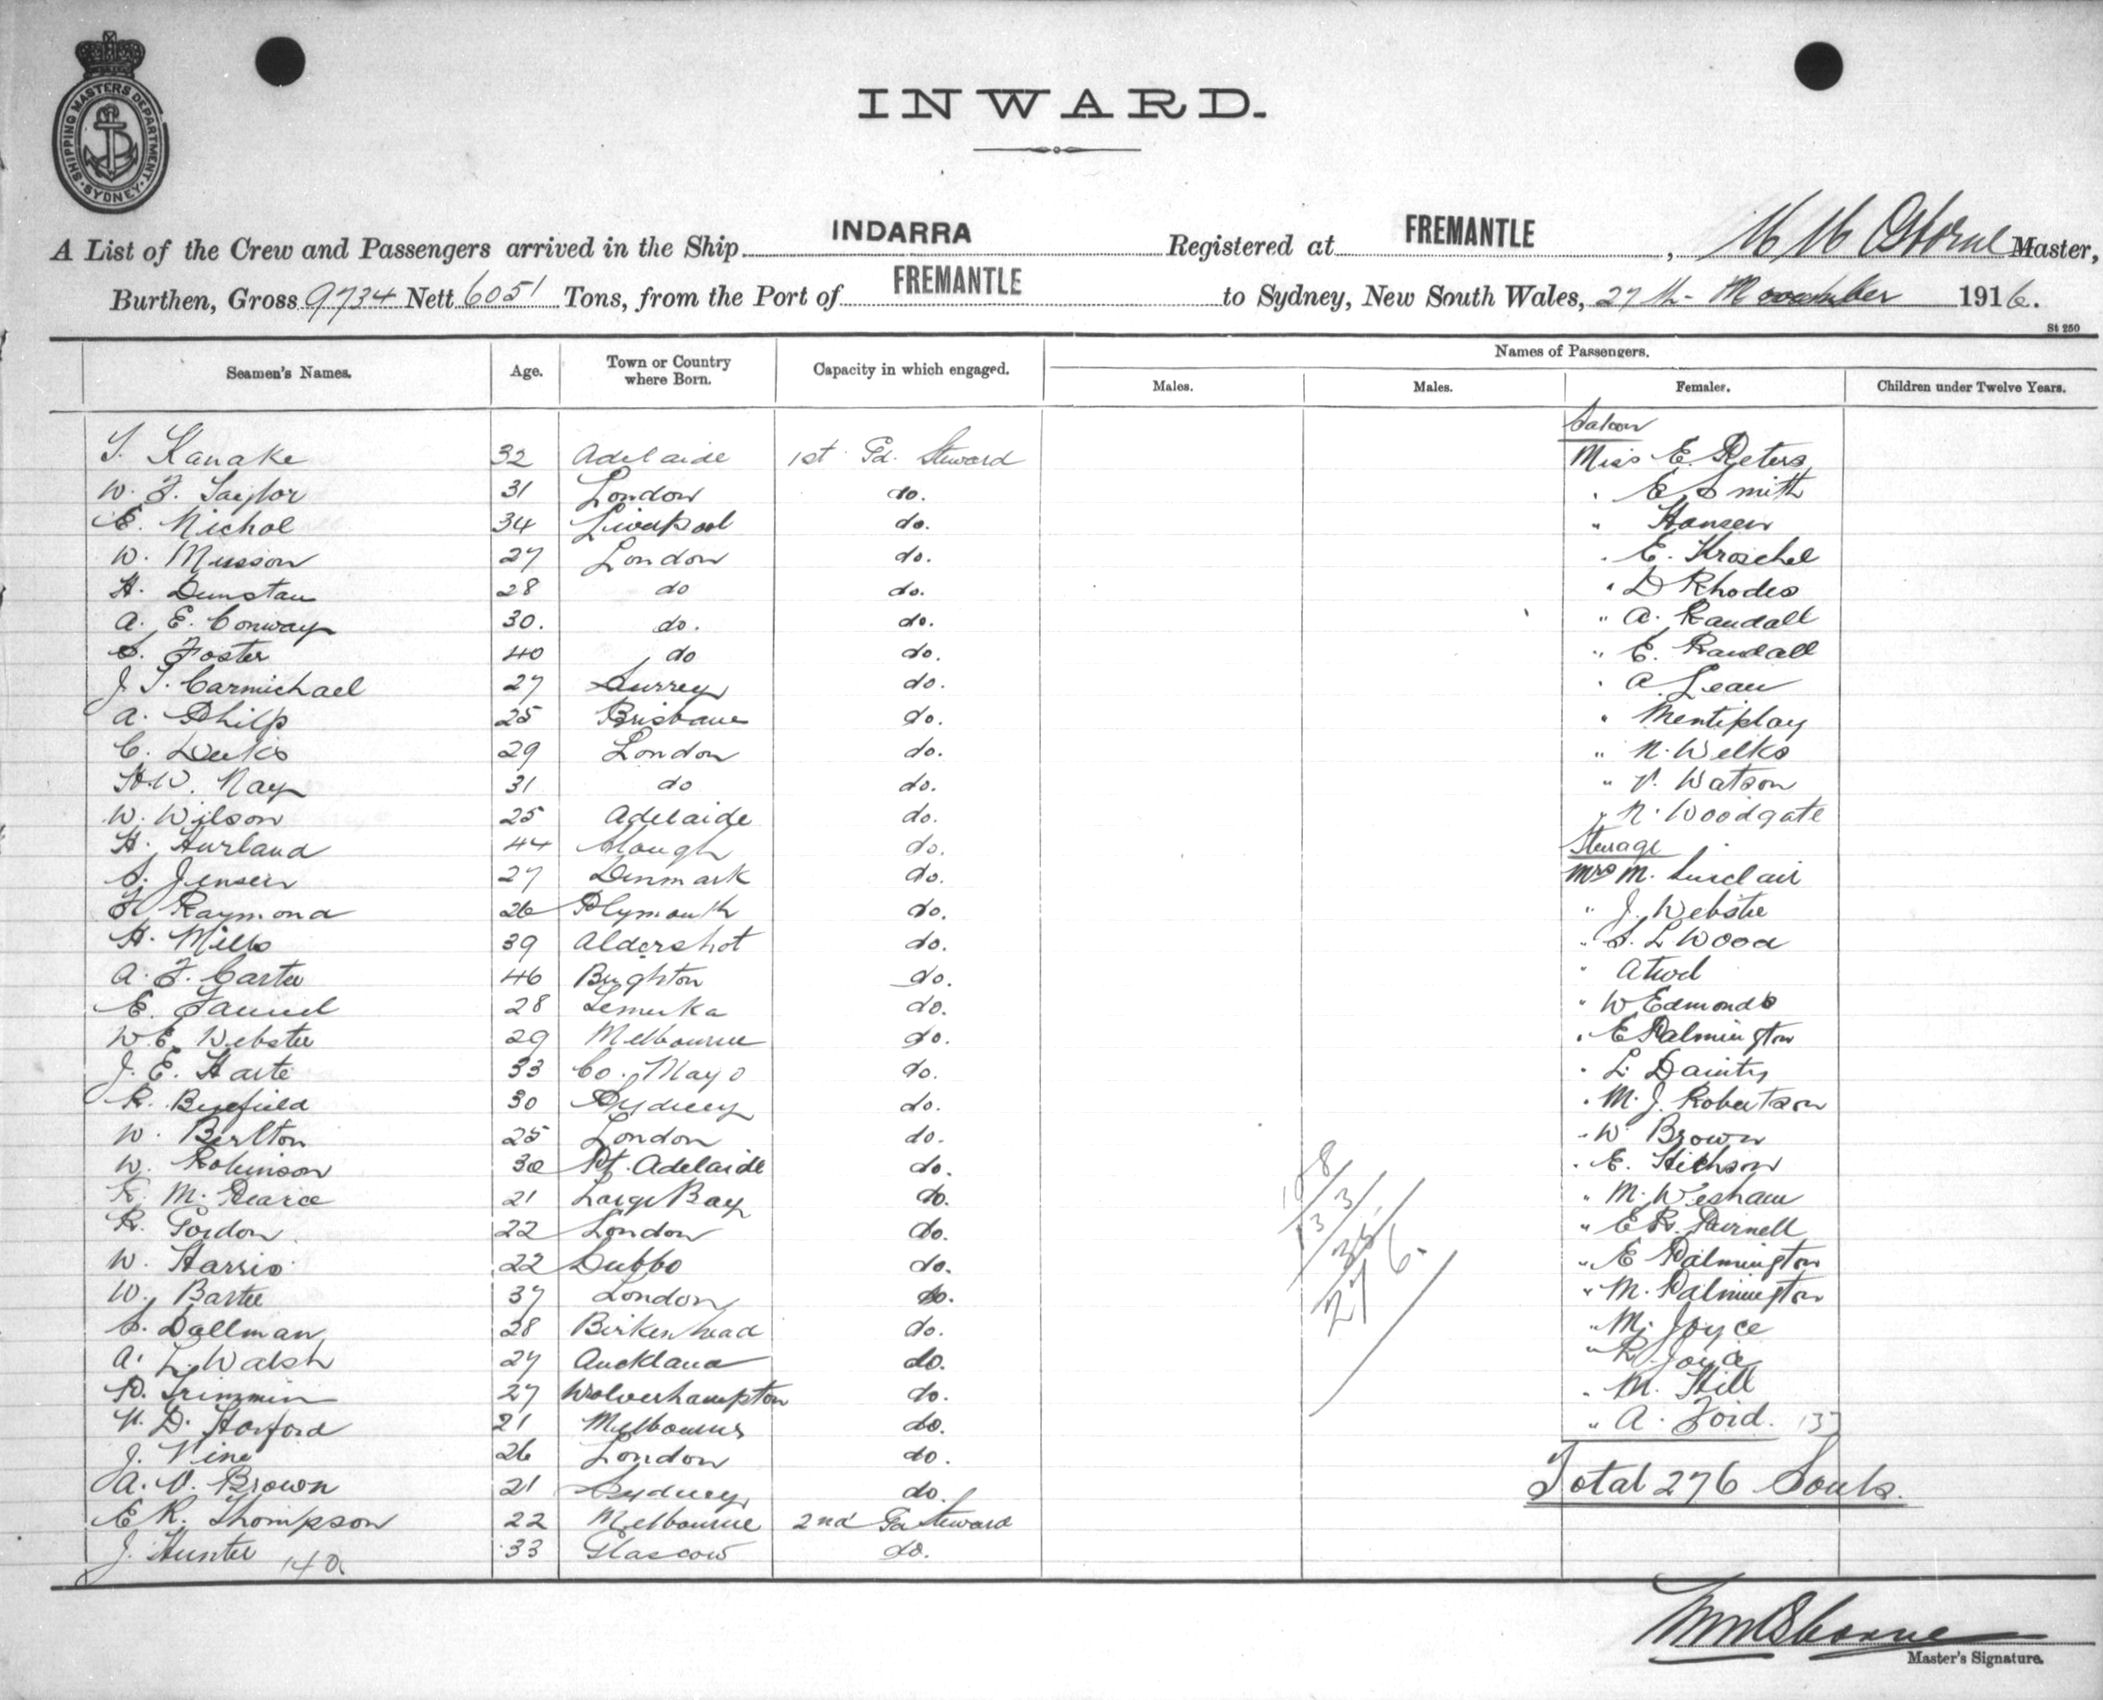 SHIPPING MASTERS DEPARTMENT
SYDNEY
INWARD.
A List of the Crew and Passengers arrived in the Ship INDARRA Registered at FREMANTLE, Master,
Burthen, Gross 9734 Nett 6051 Tons, from the Port of FREMANTLE to Sydney, New South Wales, 27th November 1916.
St 250
Seamen's Names. Age. Town or Country where Born. Capacity in which engaged. Names of Passengers.
Males. Males. Females. Children under Twelve Years.
Saloon
Kanake 32 Adelaide 1st Gd. Steward Miss E. Peters
W. F. Taylor 31 London do. " E Smith
E. Nichol 34 Liverpool do. " Hansen
W. Musson 27 London do. " E. Kroschel
H. Dunstan 28 do do. " D Rhodes
A. E. Conway 30. do. do. " A. Randall
S. Foster 40 do do. " E. Randall
J. T. Carmichael 27 Surrey do. " A. Lean
A. Philp 25 Brisbane do. " Mentiplay
C. Deeks 29 London do. " N. Welks
H.W. Nay 31 do do. " V. Watson
W. Wilson 25 Adelaide do. " N. Woodgate
H. Hurland 44 Slough do. Steerage
S. Jensen 27 Denmark do. Mrs M. Sinclair
Raymond 26 Plymouth do. " J. Webster
H. Mills 39 Aldershot do. " S. L Wood
A. F. Carter 46 Brighton do. "
E. 28 do. " W Edmonds
W.E. Webster 29 Melbourne do. " E Palmington
J. E. Harte 33 Co. Mayo do. " L. Dainty
R. Byefield 30 Sydney do. " M. J. Robertson
W. Berlton 25 London do. " W Brown
W. Robinson 30 Pt. Adelaide do. " E. Hichson
M. Pearce 21 Largs Bay do. " M. Wesham
R. Gordon 22 London do. " E R. Purnell
W. Harris 22 Dubbo do. " E Palmington
W. Barter 37 London do. " M. Palmington
S. Dollman 28 Birkenhead do. " M. Joyce
A. L. Walsh 27 Auckland do. " R. Joyce
Trimmin 27 Wolverhampton do. " M. Hill
V. D. Horford 21 Melbourne do. " A. Ford. 137
J. Vine 26 London do.
A. V. Brown 21 Sydney do. Total 276 Souls.
E R. Thompson 22 Melbourne 2nd Gd Steward
J. Hunter 140. 33 Glascow do.
108
133
35
276.
Master's Signature.